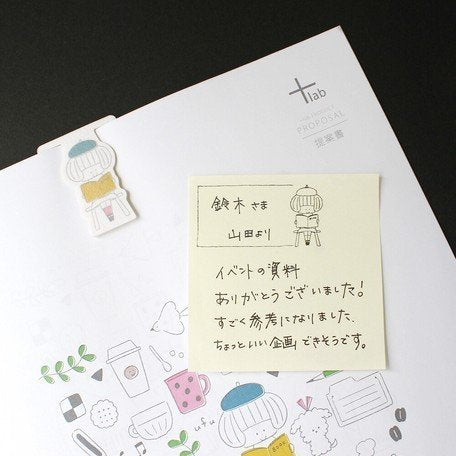 lab
PROPOSAL
提案書
鈴木さま
山田より
イベントの資料
ありがとうございました!
すごく参考になりました、
ちょっといい企画できそうです。